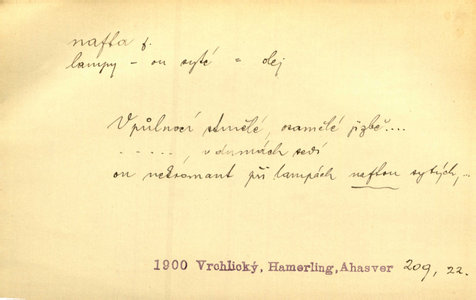 nafta f.
lampy – ou syté = dej
V půlnocí stmělé, osamělé jizbě....
. . . . . . v dumách sedí
on nekromant při lampách naftou sytých,..
1900 Vrchlický, Hamerling, Ahasver 209, 22.